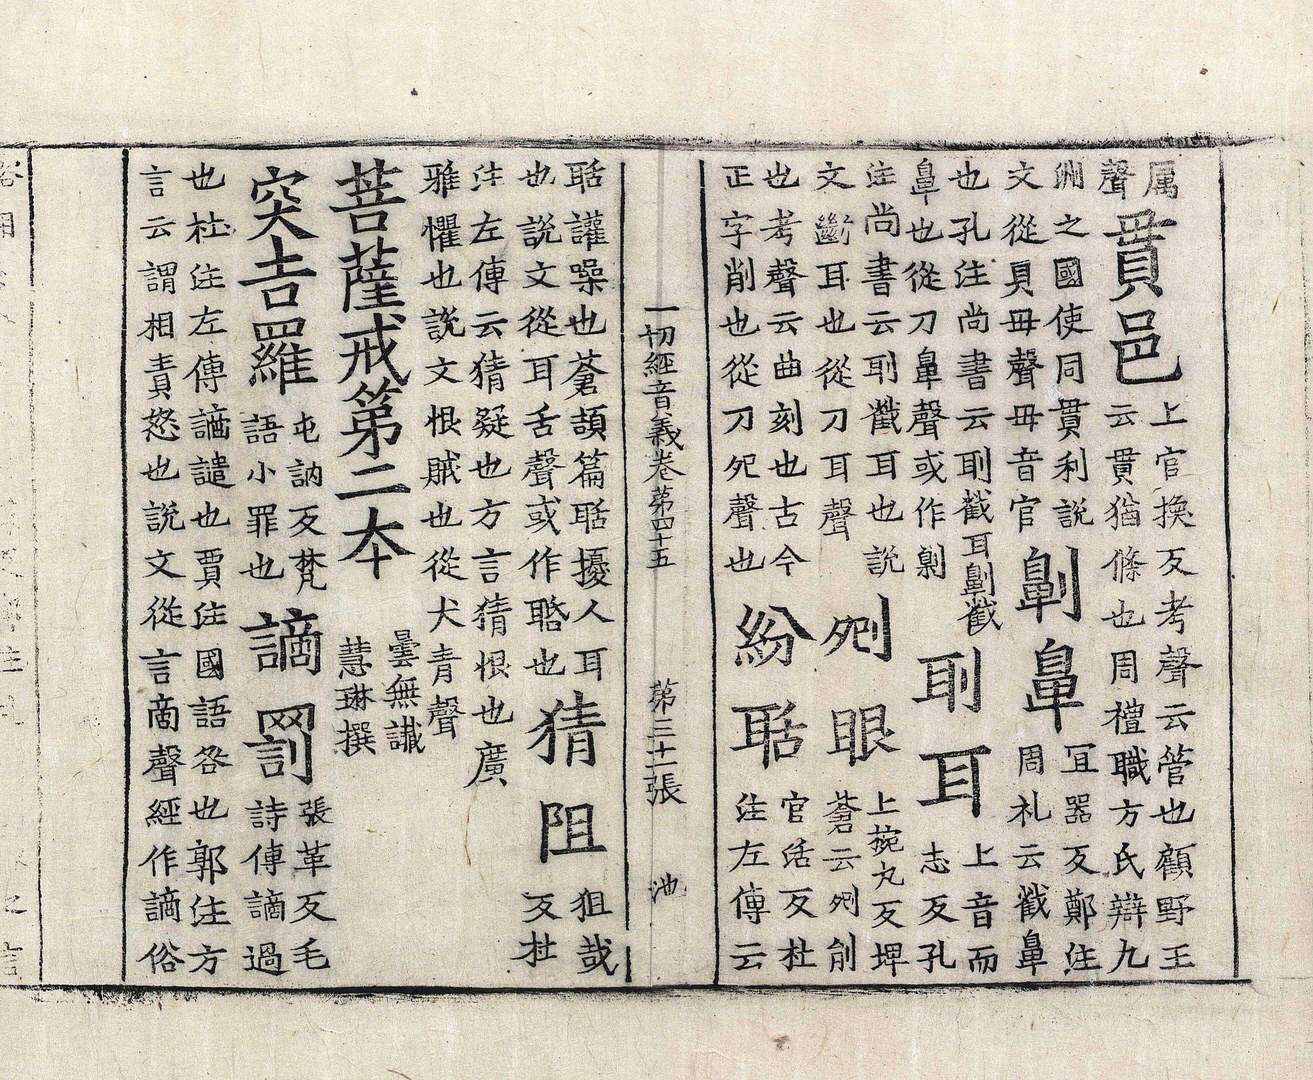 属
聲
貫邑
上官換反考聲云管也顧野王
云貫猶條也周禮職方氏辯九
州之國使同貫利說
文從貝毌聲毌音官
劓鼻
冝器反鄭注
周礼云截鼻
也孔注尚書云刵截耳劓截
鼻也從刀鼻聲或作劓
刵耳
上音而
志反孔
注尚書云刵截耳也說
文斷耳也從刀耳聲
剜眼
上捥丸反埤
蒼云剜削
也考聲云曲刻也古今
正字削也從刀夗聲也
紛聒
官活反杜
注左傳云
一切經音義卷第四十五 第三十一張 池
聒讙噪也蒼頡篇聒擾人耳
也說文從耳舌聲或作也
猜阻
狙哉
反杜
注左傳云猜疑也方言猜恨也廣
雅懼也說文恨賊也從犬青聲
菩薩戒第二本
曇無讖
慧琳撰
突吉羅
屯訥反梵
語小罪也
謫罰
張革反毛
詩傳謫過
也杜注左傳謫譴也賈注國語咎也郭注方
言云謂相責怒也說文從言啇聲經作謫俗